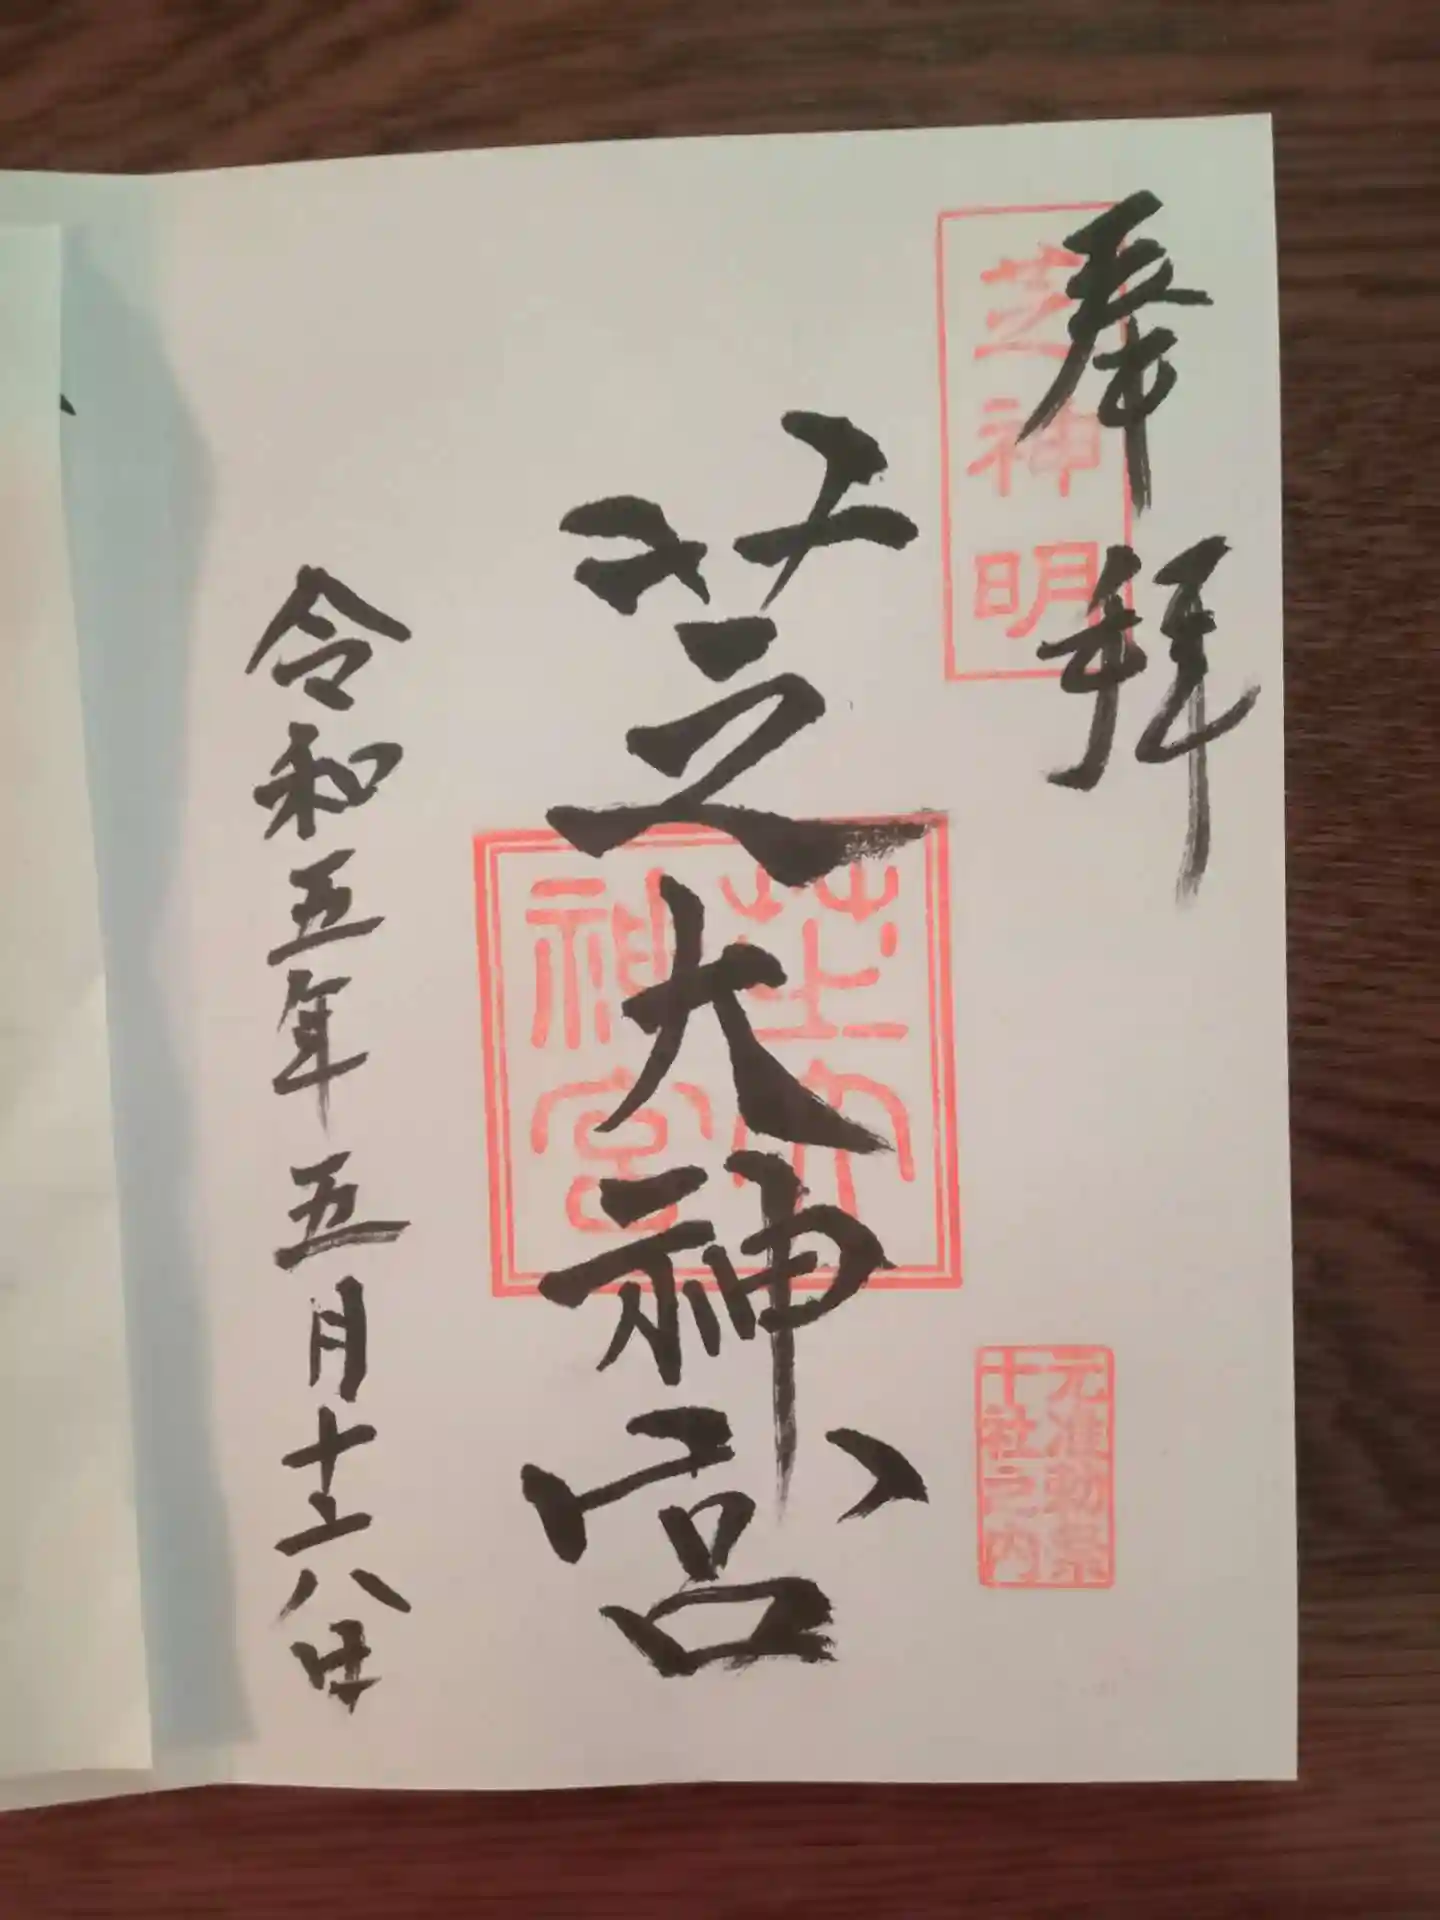 奉拝
芝神明
元准勅祭
十社之内
芝大神宮
芝大
神宮
令和五年五月十六日